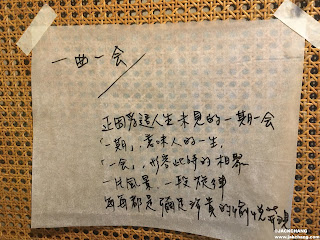 一曲一会
正因為這人生未見的一期一会
「一期」,意味人的一生,
「一会」,形容此時的相界
一片風景、一段旋律
再再都是彌足珍貴的愉悦
©JACKCHANG
www.jakchang.com